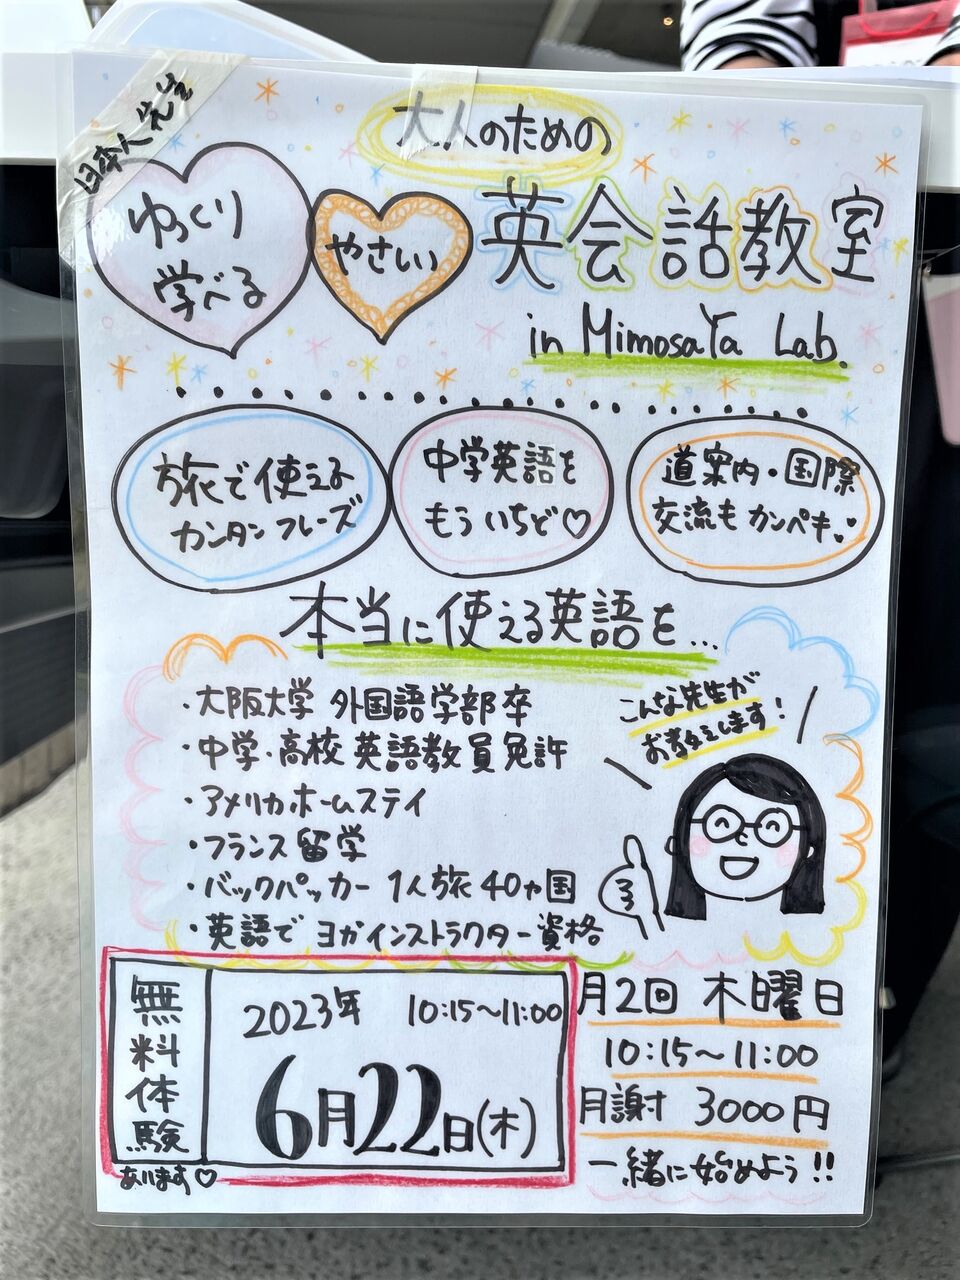 日本人先生
大人のための
ゆっくり
学べる
やさしい
英会話教室
in MimosaYa Lab.
旅で使える
カンタンフレーズ
中学英語を
もういちど♡
道案内・国際
交流もカンペキ♥
本当に使える英語を...
・大阪大学 外国語学部卒
・中学・高校 英語教員免許
・アメリカホームステイ
・フランス留学
・バックパッカー 1人旅 40ヵ国
・英語でヨガインストラクター資格
こんな先生が
お教えします!
無料体験
あります♡
2023年 10:15〜11:00
6月22日(木)
月2回 木曜日
10:15〜11:00
月謝 3000円
一緒に始めよう!!